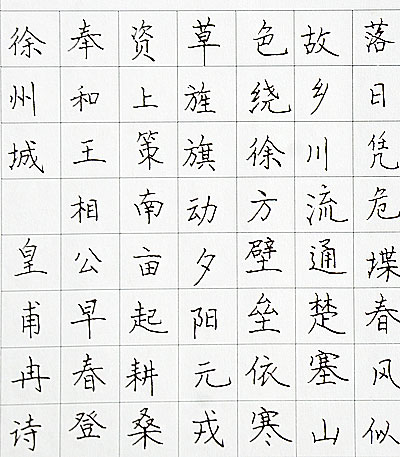 落日凭危堞春风似
故乡川流通楚塞山
色绕徐方壁垒依寒
草旌旗动夕阳元戎
资上策南亩起耕桑
奉和王相公早春登
徐州城 皇甫冉诗